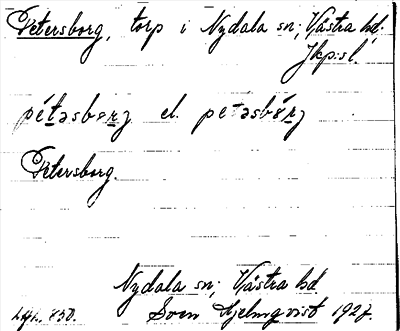 Petersborg, torp i Nydala sn; Västra hd.
Jkp:s l.
pétəsbərg el. petəsbǿrg
Petersborg.
Nydala sn; Västra hd.
830. Sven Hjelmqvist 1927.